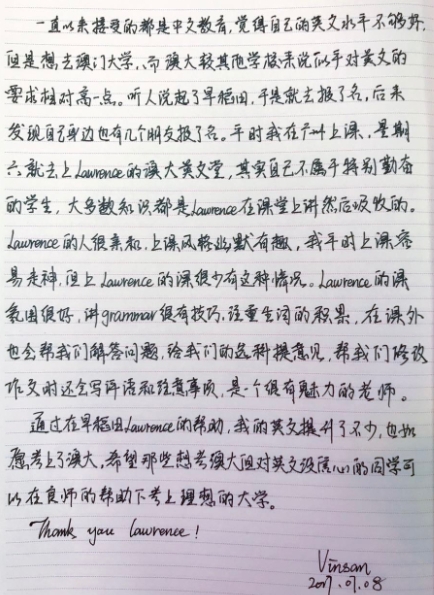 一直以来接受的都是中文教育，觉得自己的英文水平不够好，
但是想去澳门大学，而澳大较其他学校来说似乎对英文的
要求相对高一点。听人说起了早稻田，于是就去报了名，后来
发现自己身边也有几个朋友报了名。平时我在广州上课，星期
六就去上Lawrence的澳大英文堂，其实自己不属于特别勤奋
的学生，大多数知识都是Lawrence在课堂上讲然后吸收的。
Lawrence的人很亲和，上课风格幽默有趣，我平时上课容
易走神，但上Lawrence的课很少有这种情况。Lawrence的课
氛围很好，讲grammar很有技巧，注重生词的积累，在课外
也会帮我们解答问题，给我们的选科提意见，帮我们修改
作文时还会写评语和注意事项，是一个很有魅力的老师。
通过在早稻田Lawrence的帮助，我的英文提升了不少，也如
愿考上了澳大，希望那些想考澳大但对英文没信心的同学可
以在良师的帮助下考上理想的大学。
Thank you Lawrence!
Vinsan
2017.07.08